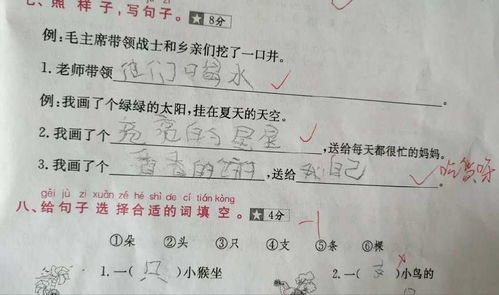 七、照 样 子,写句子。★ 8分
例:毛主席带领战士和乡亲们挖了一口井。
1.老师带领他们口留水。
例:我画了个绿绿的太阳,挂在夏天的天空。
2.我画了个亮亮的星星,送给每天都很忙的妈妈。
3.我画了个香香的饼,送给我自己。
gěi jù zi xuǎn zé hé shì de cí tián kòng
八、给句子 选 择合适的词 填 空。★ 4分 -1
①朵 ②头 ③只 ④支 ⑤条 ⑥棵
1.一(只)小猴坐 2.一(支)小鸟的